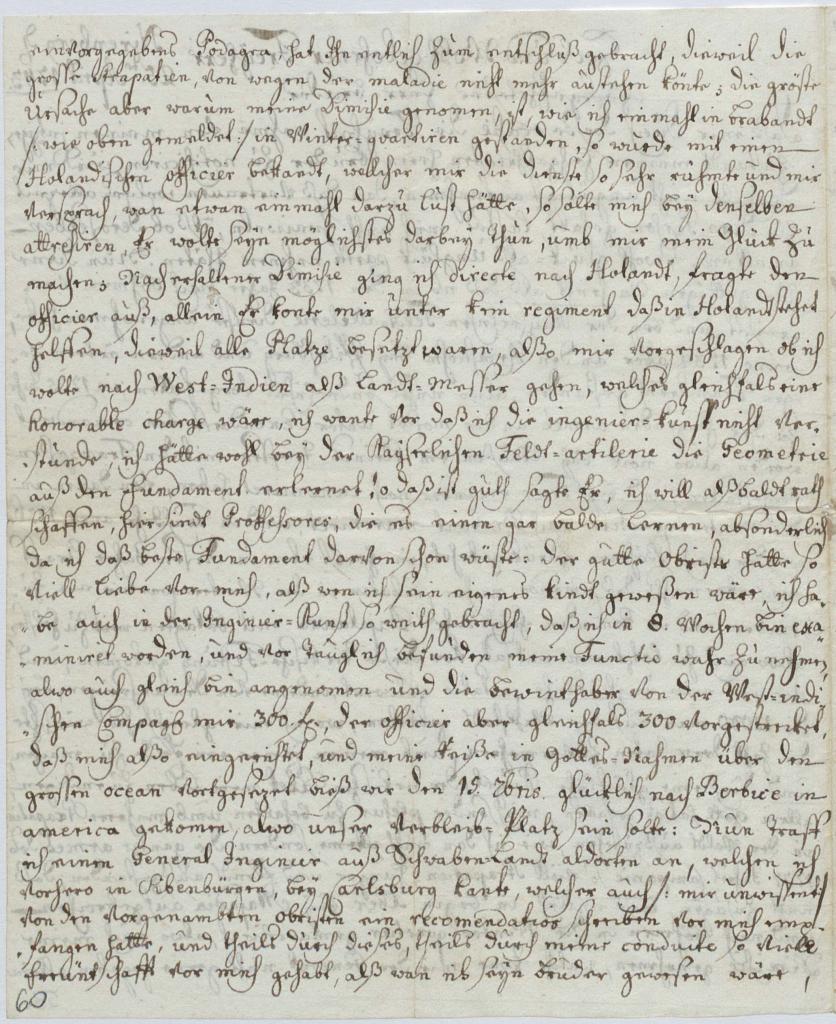 einvorgegebens Podagra, hat Ihn entlich zum entschluß gebracht, dieweil die
grosse strapatien, von wegen der maladie nicht mehr austehen könte; die gröste
Ursache aber warum meine Dimisie genomen, ist, wie ich einmahl in Brabandt
/: wie oben gemeldet :/ in Winter=quartiren gestanden, so wurde mit einen
Holandischen officier bekandt, wellcher mir die dienste so sehr rühmte und mir
versprach, wan etwan einmahl darzu lust hätte, so solte mich bey denselben
attresiren, Er wolte seyn möglichstes darbey thun, umb mir mein Glück zu
machen; Nach erhaltener Dimisie ging ich directe nach Holandt, fragte den
officier auß, allein Er konte mir unter kein regiment daß in Holandt stehet
helffen, dieweil alle Platze besetzt waren, alßo mir vorgeschlagen ob ich
wolte nach West=Indien alß Landt=Messer gehen, welches gleichfals eine
honorable charge wäre, ich wante vor daß ich die ingenier=kunst nicht ver=
=stünde, ich hätte wohl bey der Kayserlichen Feldt=artilerie die Geometrie
auß den Fundament erlernet, o daß ist guth sagte Er, ich will alßbaldt rath
schaffen, hier sindt Proffessores, die es einen gar balde lernen, absonderlich
da ich daß beste Fundament darvon schon wüste: der gutte Obriste hatte so
viell liebe vor mich, alß wen ich sein eigenes kindt geweßen wäre, ich ha=
=be auch in der Inginier=Kunst so weith gebracht, daß ich in 8. Wochen bin exa=
=miniret worden, und vor tauglich befunden meine Functio wahr zu nehmen,
alwo auch gleich bin angenomen und die bewinthaber von der West=indi=
=schen Compag: mir 300 fl., der officier aber gleichfals 300 vorgestrecket,
daß mich alßo eingerichtet, und meine reiße in Gottes=Nahmen über den
grossen ocean vortgesezet bieß wir den 15. glücklich nach Berbice in
america gekomen, alwo unser verbleib=Platz sein solte: Nun traff
ich einen General Inginieur auß Schwaben=Landt aldorten an, welchen ich
vorhero in Sibenbürgen, bey Carlsburg kante, welcher auch /: mir unwissent :/
von den vorgenambten obristen ein recomendations schreiben vor mich emp=
=fangen hatte, und theils durch dieses, theils durch meine conduite so viell
freuntschafft vor mich gehabt, alß wan ich seyn bruder gewesen wäre,
60